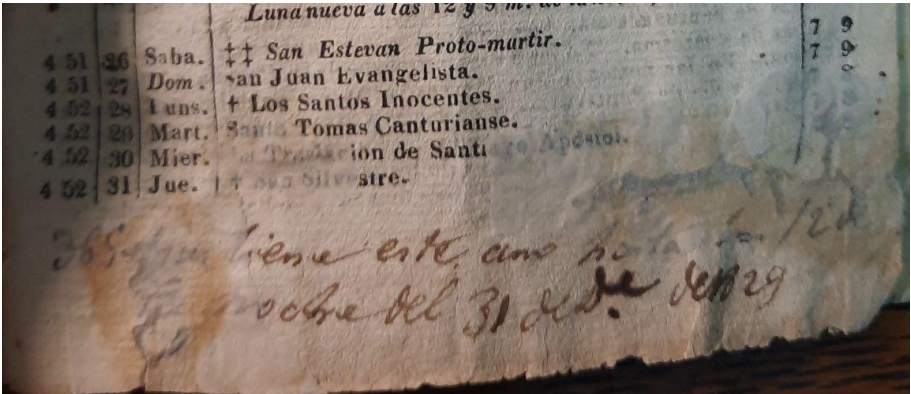 Luna nueva a las 12 y 5 m. de
4 51 26 Saba. ‡‡ San Estevan Proto-martir. 7 9
4 51 27 Dom. San Juan Evangelista. 7 9
4 52 28 Luns. † Los Santos Inocentes.
4 52 29 Mart. Santo Tomas Canturianse.
4 52 30 Mier. La Traslacion de Santiago Apostol.
4 52 31 Jue. † San Silvestre.
365 tiene este ano hasta 12 de
noche del 31 de De. de 1829